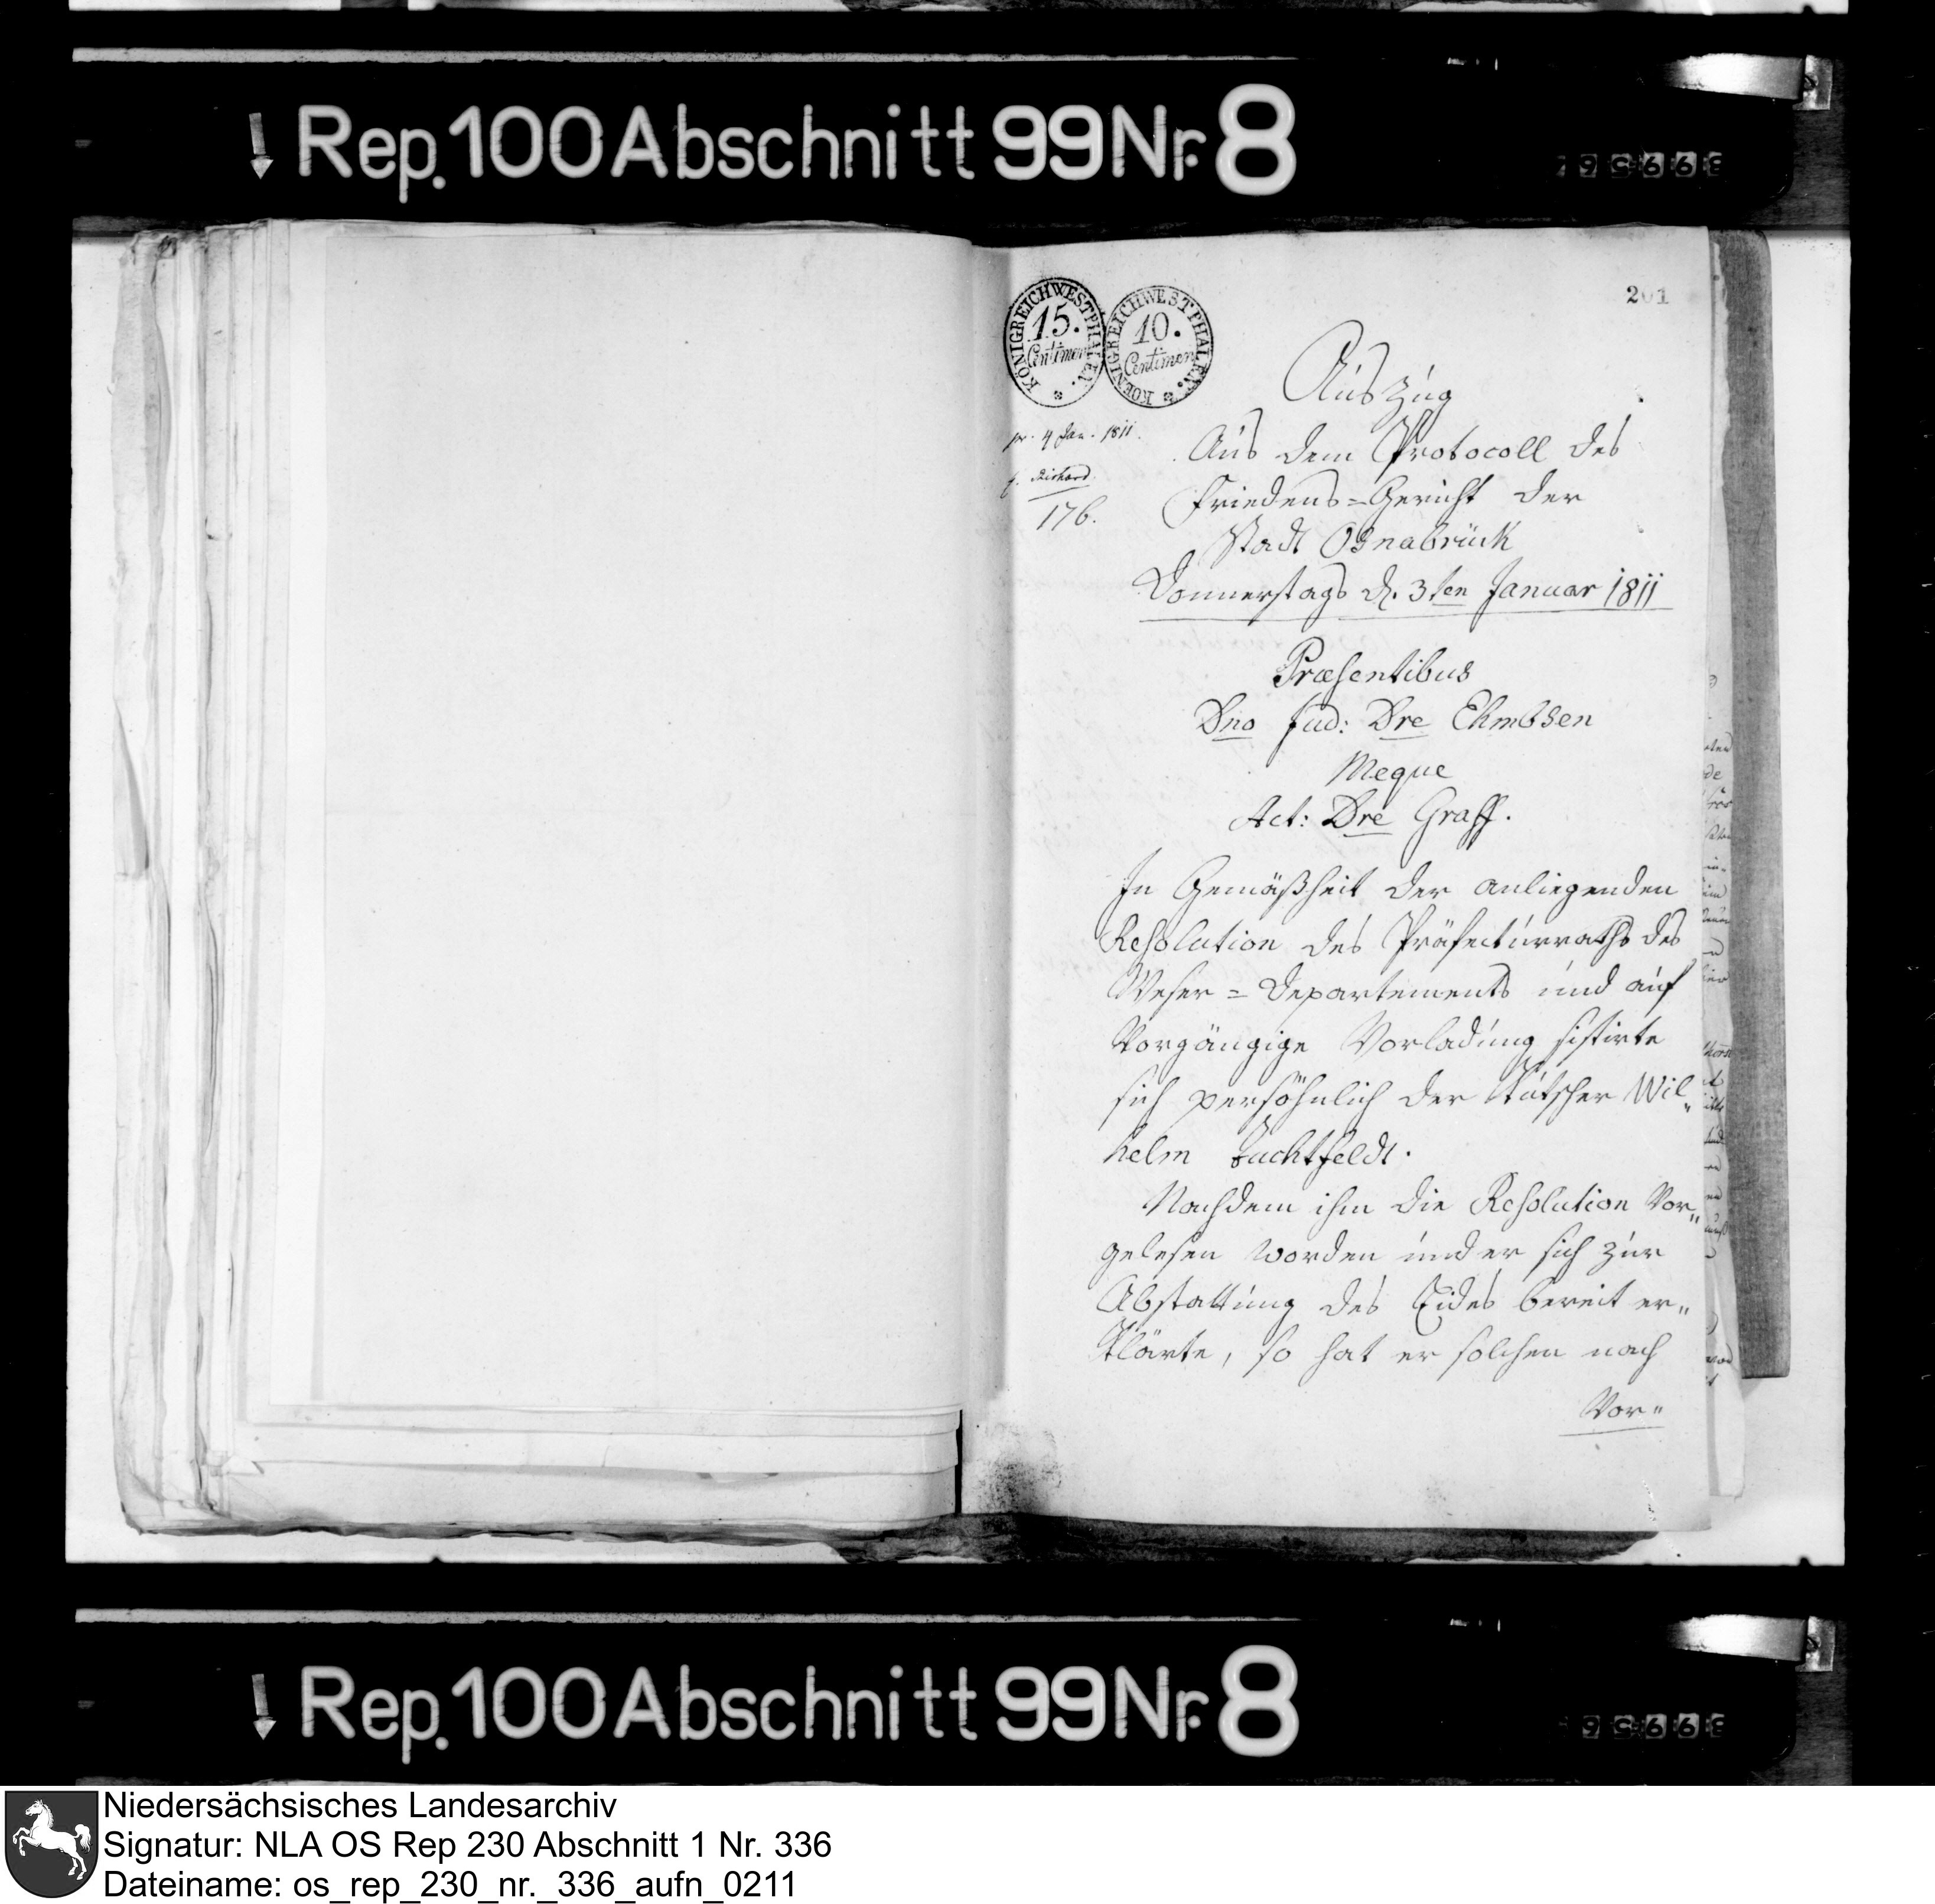 Rep. 100 Abschnitt 99 Nr. 8
201
KÖNIGREICH WESTPHALEN. 15. Centimen
KOENIGREICH WESTPHALEN. 10. Centimen
pr. 4 Jan. 1811.
Richard.
176.
Auszug
Aus dem Protocoll des
Friedens=Gericht der
Stadt Osnabrück
Donnerstags d. 3ten Januar 1811
Præsentibus
Dno Jud: Dre Ehmbsen
Meque
Act: Dre Graff.
In Gemäßheit der anliegenden
Resolution des Präfecturraths des
Weser=Departements und auf
Vorgängige Vorladung sistirte
sich persöhnlich der Kutscher Wil„
helm Buchtfeldt.
Nachdem ihm die Resolution Vor„
gelesen worden und er sich zur
Abstattung des Eides bereit er„
klärte, so hat er solchen nach
Vor„
Rep. 100 Abschnitt 99 Nr. 8
Niedersächsisches Landesarchiv
Signatur: NLA OS Rep 230 Abschnitt 1 Nr. 336
Dateiname: os_rep_230_nr._336_aufn_0211